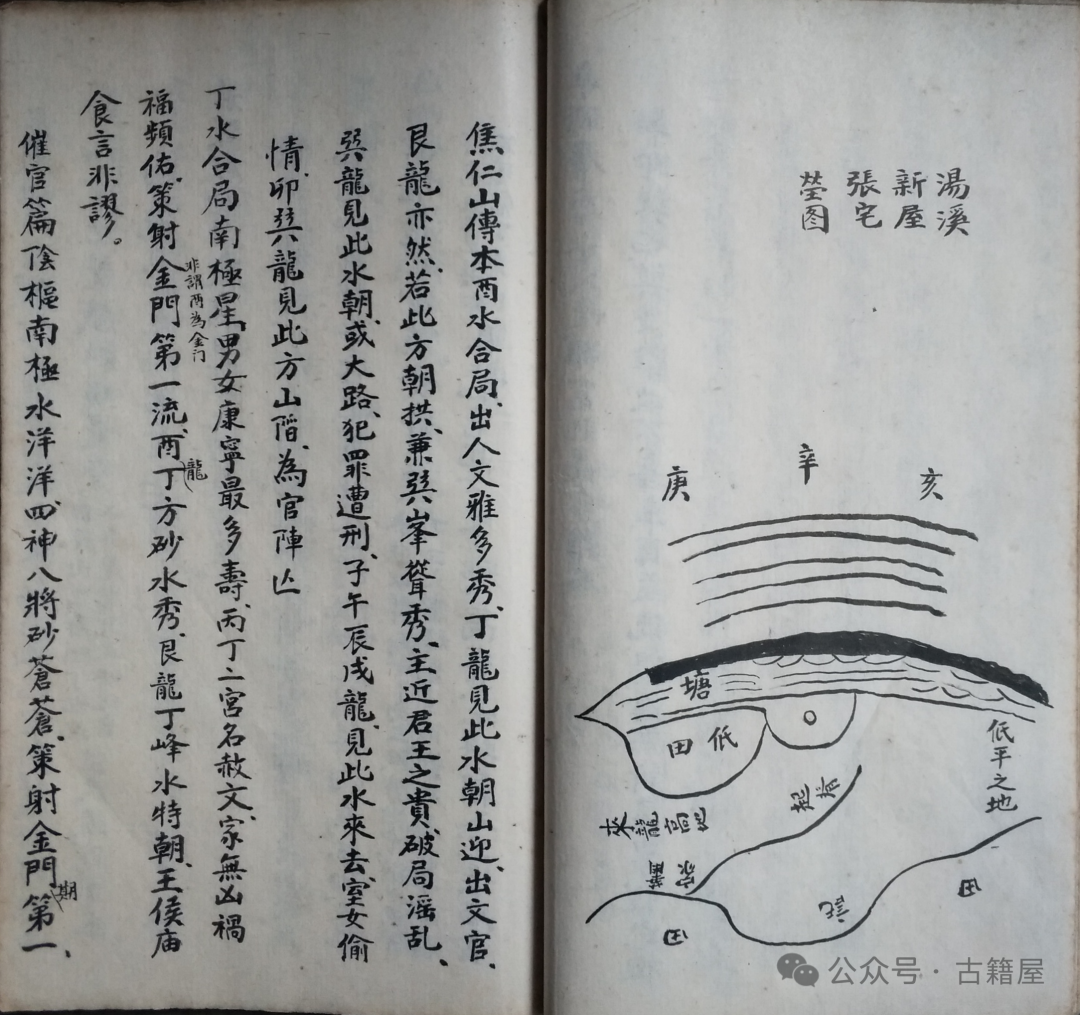 湯溪
新屋
張宅
塋图
庚
辛
亥
塘
低田
低平之地
來龍高地
田
田
焦仁山傳本酉水合局、出人文雅多秀、丁龍見此水朝山迎、出文官、
艮龍亦然、若此方朝拱、兼巽峯聳秀、主近君王之貴、破局淫乱、
巽龍見此水朝、或大路、犯罪遭刑、子午辰戌龍、見此水來去、室女偷
情、卯巽龍見此方山階、為官陣亾
丁水合局南極星、男女康寧最多壽、丙丁二宮名赦文、家無凶禍
福頻佑、策射金門第一流、酉丁方砂水秀、艮龍丁峰水特朝、王侯庙
非謂酉為金门
龍
食言非謬。
催官篇陰樞南極水洋洋、四神八將砂蒼蒼、策射金門第一、
期
公众号·古籍屋